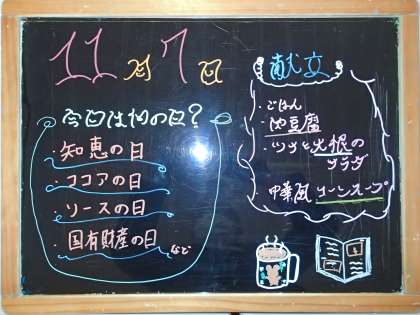 11月7日
今日は何の日?
・知恵の日
・ココアの日
・ソースの日
・国有財産の日
など
献立
・ごはん
・肉豆腐
・ツナと大根の
サラダ
・中華風コーンスープ